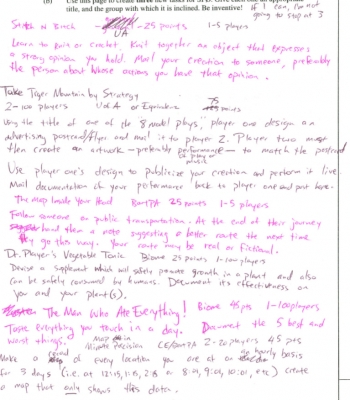 (b) Use this page to create three new tasks for
title, and the group with which it is inclined. Be inventive! If I can, I'm not
going to stop at 3
Stitch n Bitch - 25 points 1-5 players
UA
Learn to knit or crochet. Knit together an object that expresses
a strong opinion you hold. Mail your creation to someone, preferably
the person about whose actions you have that opinion.
Take Tiger Mountain by Strategy
2-100 players U of A or Equivalence 75 points
Using the title of one of the 8 model plays, player one designs an
advertising postcard/flyer and mail it to player 2. Player two must
then create an artwork - preferably performance - to match the postcard
of play or music
Use player one's design to publicize your creation and perform it live.
Mail documentation of your performance back to player one and post here.
The Map Inside Your Head BARTPA 25 points 1-5 players
Follow someone on public transportation. At the end of their journey
hand them a note suggesting a better route the next time
they go this way. Your route may be real or fictional.
Dr. Player's Vegetable Tonic Biome 25 points 1-100 players
Devise a supplement which will safely promote growth in a plant and also
can be safely consumed by humans. Document its effectiveness on
you and your plant(s).
The Man Who Ate Everything! Biome 45 pts 1-100 players
Taste everything you touch in a day. Document the 5 best and
worst things.
Map Minute Precision 2-20 players 45 pts
Make a record of every location you are at on an hourly basis
for 3 days (i.e. at 12:15, 1:15, 2:15 or 8:01, 9:01, 10:01, etc) create
a map that only shows this data.